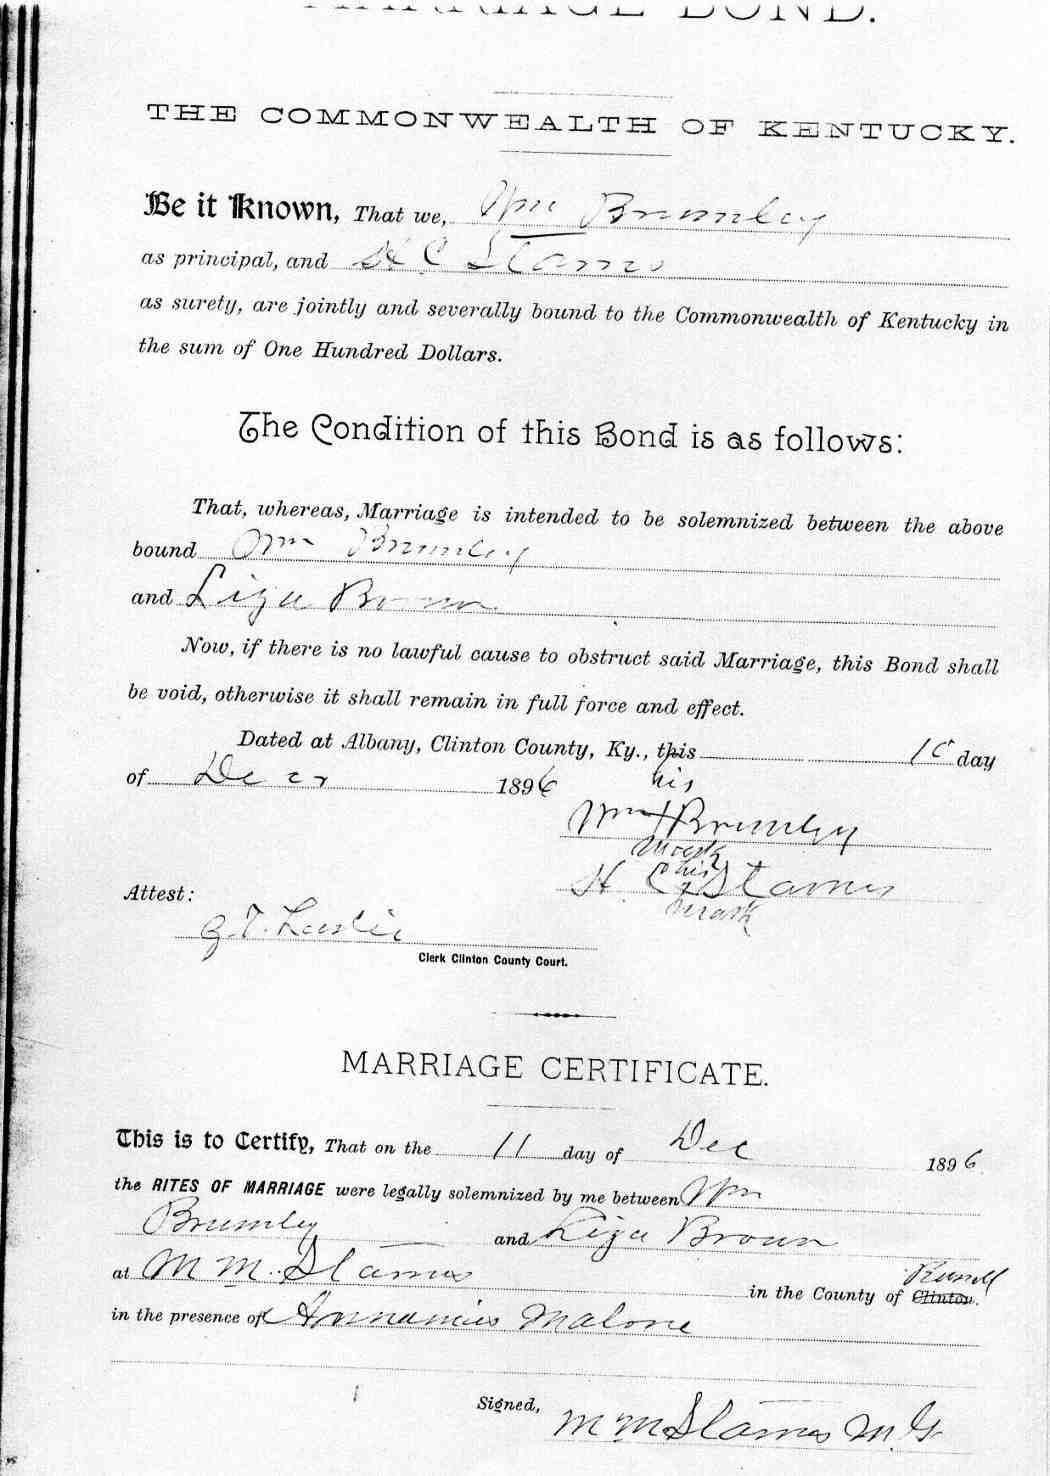 MARRIAGE BOND.
THE COMMONWEALTH OF KENTUCKY.
Be it Known, That we, Wm Brumley
as principal, and H C Starns
as surety, are jointly and severally bound to the Commonwealth of Kentucky in
the sum of One Hundred Dollars.
The Condition of this Bond is as follows:
That, whereas, Marriage is intended to be solemnized between the above
bound Wm Brumley
and Liza Brown
Now, if there is no lawful cause to obstruct said Marriage, this Bond shall
be void, otherwise it shall remain in full force and effect.
Dated at Albany, Clinton County, Ky., this day
of 1896
his
Wm X Brumley
mark
his
H. C. X Starns
mark
Attest:
Clerk Clinton County Court.
MARRIAGE CERTIFICATE.
This is to Certify, That on the 11 day of Dec 1896
the RITES OF MARRIAGE were legally solemnized by me between Wm
Brumley and Liza Brown
at M M. Starns in the County of Clinton. Russell
in the presence of Malone
Signed,
M M Starns M. G.